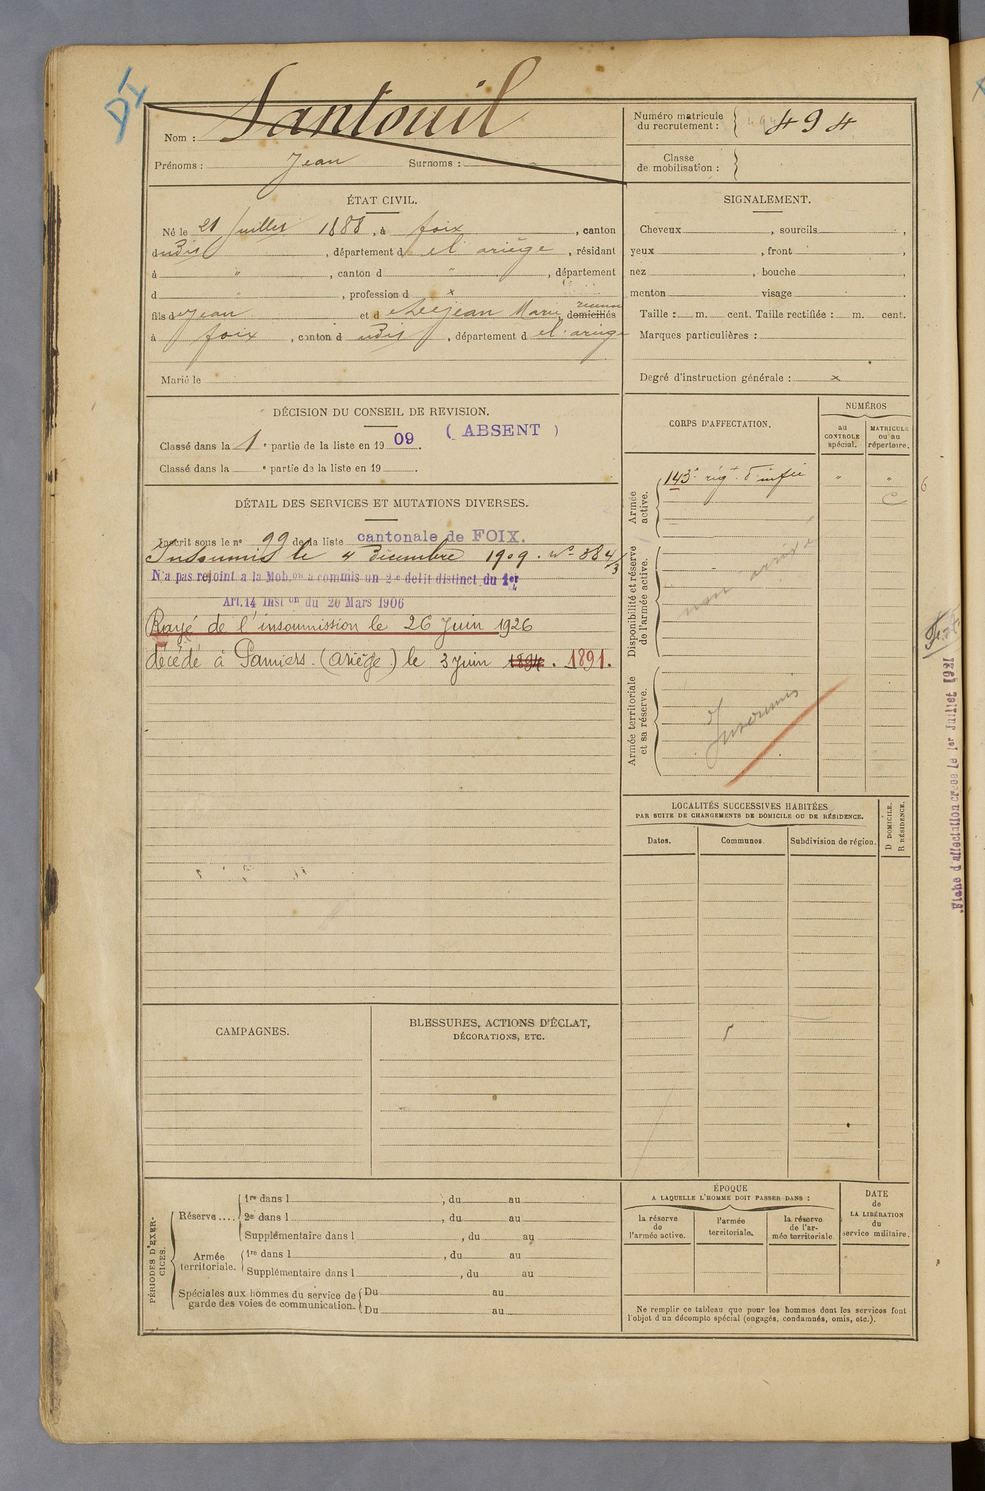 DI
Nom : Santouil
Prénoms : Jean Surnoms :
Numéro matricule du recrutement : 494
Classe de mobilisation :
ÉTAT CIVIL.
Né le 21 Juillet 1888, à foix, canton
dudis, département de l'ariège, résidant
à " , canton d " , département
d " , profession d x
fils de Jean et d Marie domiciliés
à foix, canton dudis, département de l'ariège
Marié le
SIGNALEMENT.
Cheveux , sourcils ,
yeux , front ,
nez , bouche ,
menton visage .
Taille : m. cent. Taille rectifiée : m. cent.
Marques particulières :
Degré d'instruction générale : x
DÉCISION DU CONSEIL DE REVISION.
Classé dans la 1 e partie de la liste en 19 09. ( ABSENT )
Classé dans la e partie de la liste en 19 .
DÉTAIL DES SERVICES ET MUTATIONS DIVERSES.
Inscrit sous le n° 99 de la liste cantonale de FOIX.
Insoumis le 4 Décembre 1909. N° 384/3
N'a pas rejoint a la Mob.on a commis un 2e delit distinct du 1er
Art. 14 Inst on du 20 Mars 1906
Rayé de l'insoumission le 26 Juin 1926
décédé à Pamiers. (Ariège) le 3 Juin 1894. 1891.
CORPS D'AFFECTATION.
NUMÉROS
au CONTROLE spécial.
MATRICULE ou au répertoire.
Armée active.
143e régt d'infie " "
C
6
Disponibilité et réserve de l'armée active.
non arrivé
Armée territoriale et sa réserve.
Insoumis
Fiche d'affectation créée le 1er Juillet 1921
LOCALITÉS SUCCESSIVES HABITÉES
PAR SUITE DE CHANGEMENTS DE DOMICILE OU DE RÉSIDENCE.
Dates. Communes. Subdivision de région.
D DOMICILE.
R RÉSIDENCE.
CAMPAGNES.
BLESSURES, ACTIONS D'ÉCLAT,
DÉCORATIONS, ETC.
PÉRIODES D'EXERCICES.
Réserve .... 1re dans l , du au
2e dans l , du au
Supplémentaire dans l , du au
Armée territoriale. 1re dans l , du au
Supplémentaire dans l , du au
Spéciales aux hommes du service de garde des voies de communication. Du au
Du au
ÉPOQUE
A LAQUELLE L'HOMME DOIT PASSER DANS :
la réserve de l'armée active.
l'armée territoriale.
la réserve de l'armée territoriale
DATE de LA LIBÉRATION du service militaire.
Ne remplir ce tableau que pour les hommes dont les services font
l'objet d'un décompte spécial (engagés, condamnés, omis, etc.).